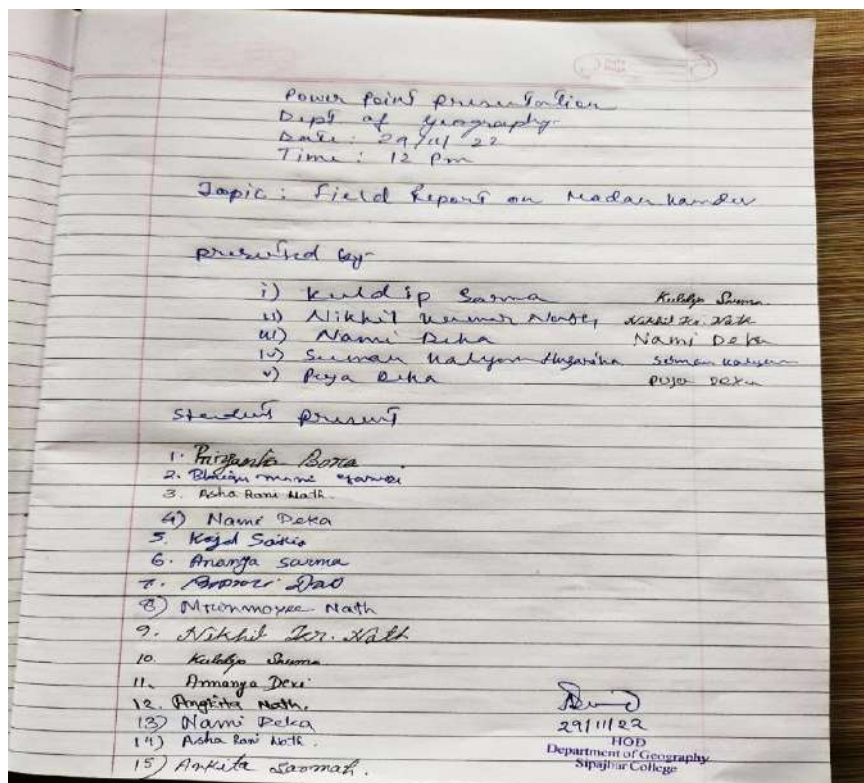 Power Point presentation
Dept of Geography
Date: 29/11/22
Time: 12 Pm
Topic: Field Report on Madan Kamdev
presented by-
i) Kuldip Sarma Kuldip Sarma
ii) Nikhil Kumar Nath, Nikhil Kr. Nath
iii) Nami Deka Nami Deka
iv) Suman Kalyan Hazarika Suman Kalyan
v) Puja Deka Puja Deka
Student present
1. Priyanka Bora
2. mani
3. Asha Rani Nath.
4) Nami Deka
5. Kajol Saikia
6. Ananya Sarma
7. Das
8) Mrinmoyee Nath
9. Nikhil Kr. Nath
10. Kuldip Sarma
11. Devi
12. Angkita Nath.
13) Nami Deka
14) Asha Rani Nath.
15) Ankita Sarmah.
29/11/22
HOD
Department of Geography
Sipajhar College